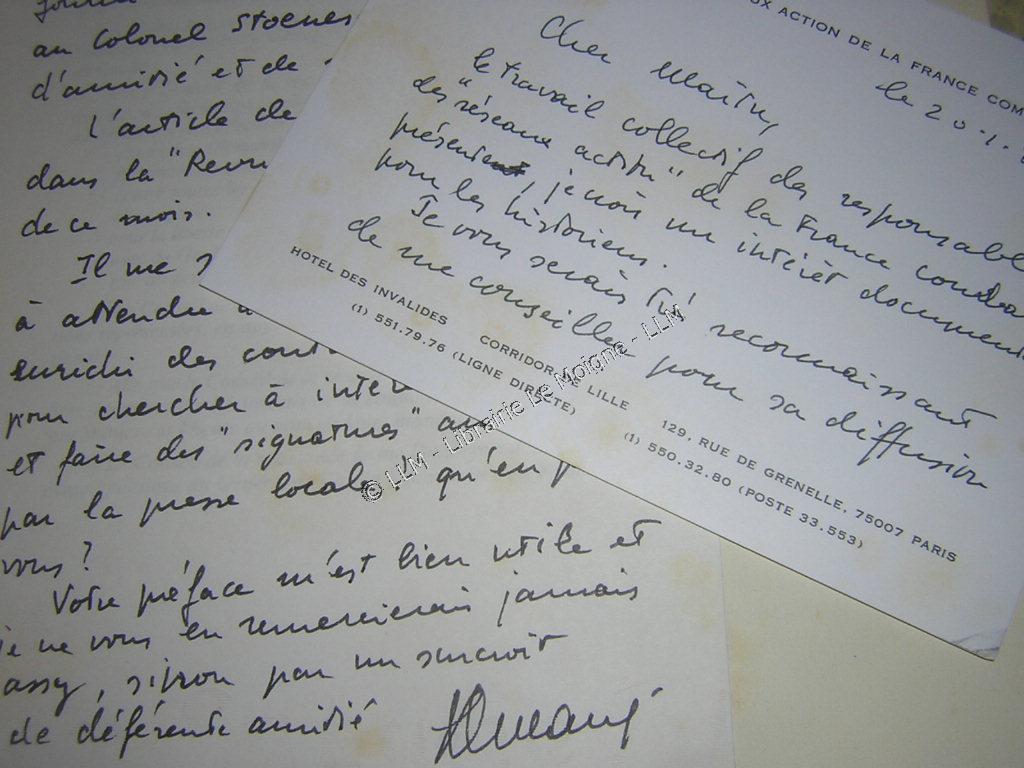 au Colonel
d'amitié et de
L'article de
dans la "Revu
de ce mois.
Il me
à attendre
enrichi des
pour chercher à
et faire des "signatures"
par la presse locale ! qu'en
vous ?
Votre préface m'est bien utile et
je ne vous en remercierais jamais
assez, sinon par un surcroit
de déférente amitié
UX ACTION DE LA FRANCE COM
le 20.1.
Cher Maître,
le travail collectif des responsable
des "réseaux action" de la France combat
présente, je crois un intérêt document
pour les historiens.
Je vous serais très reconnaissant
de me conseiller pour sa diffusion
HOTEL DES INVALIDES CORRIDOR DE LILLE
(1) 551.79.76 (LIGNE DIRECTE)
129, RUE DE GRENELLE, 75007 PARIS
(1) 550.32.80 (POSTE 33.553)
© LLM - Librairie Le Moigne - LLM